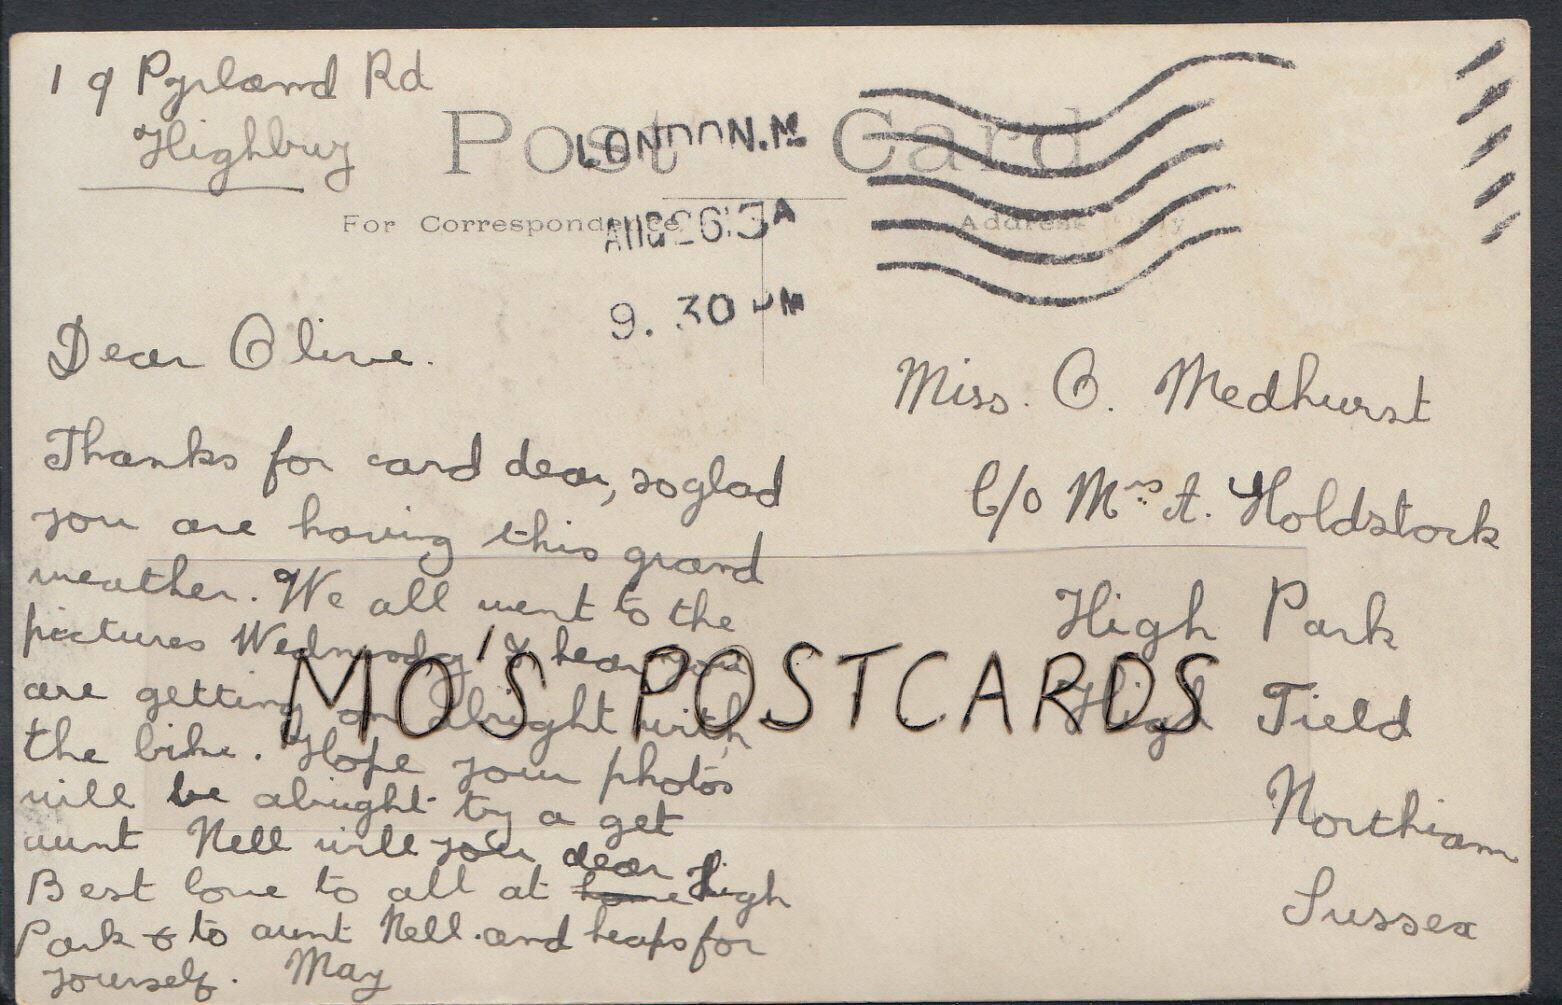 19 Pyrland Rd
Highbury
Post Card
LONDON.N.
For Correspondence
Address Only
AUG 26 13 A
9. 30 PM
Dear Olive.
Thanks for card dear, so glad
you are having this grand
weather. We all went to the
pictures Wednesday I hear you
are getting on alright with
the bike. Hope your photos
will be alright try a get
aunt Nell will you dear
Best love to all at home High
Park & to aunt Nell. and heaps for
yourself. May
Miss. O. Medhurst
C/o Mrs A. Holdstock
High Park
High Field
Northiam
Sussex
MO'S POSTCARDS